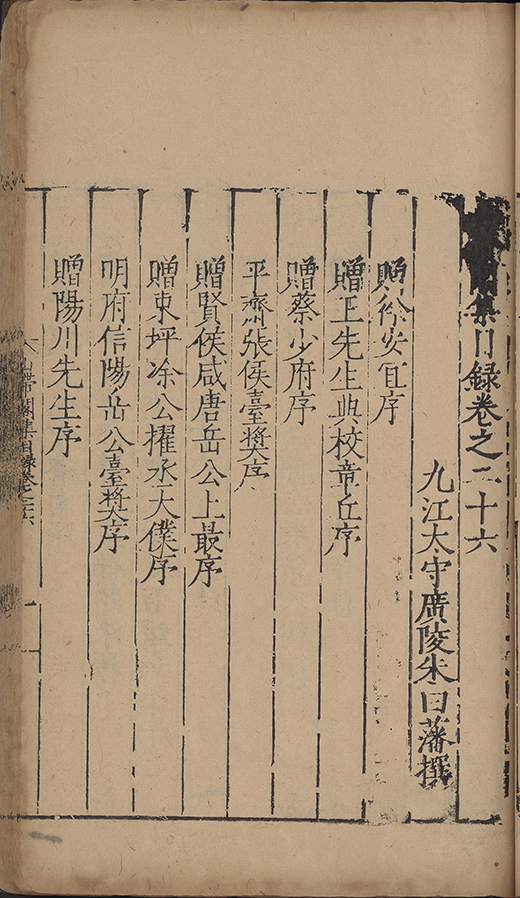 集目錄卷之二十六
九江太守廣陵朱曰藩撰
贈徐安宜序
贈王先生典校章丘序
贈蔡少府序
平齋張侯臺獎序
贈賢侯咸唐岳公上最序
贈東坪凃公擢丞大僕序
明府信陽岳公臺獎序
贈陽川先生序
山帶閣集目錄卷之二六 一